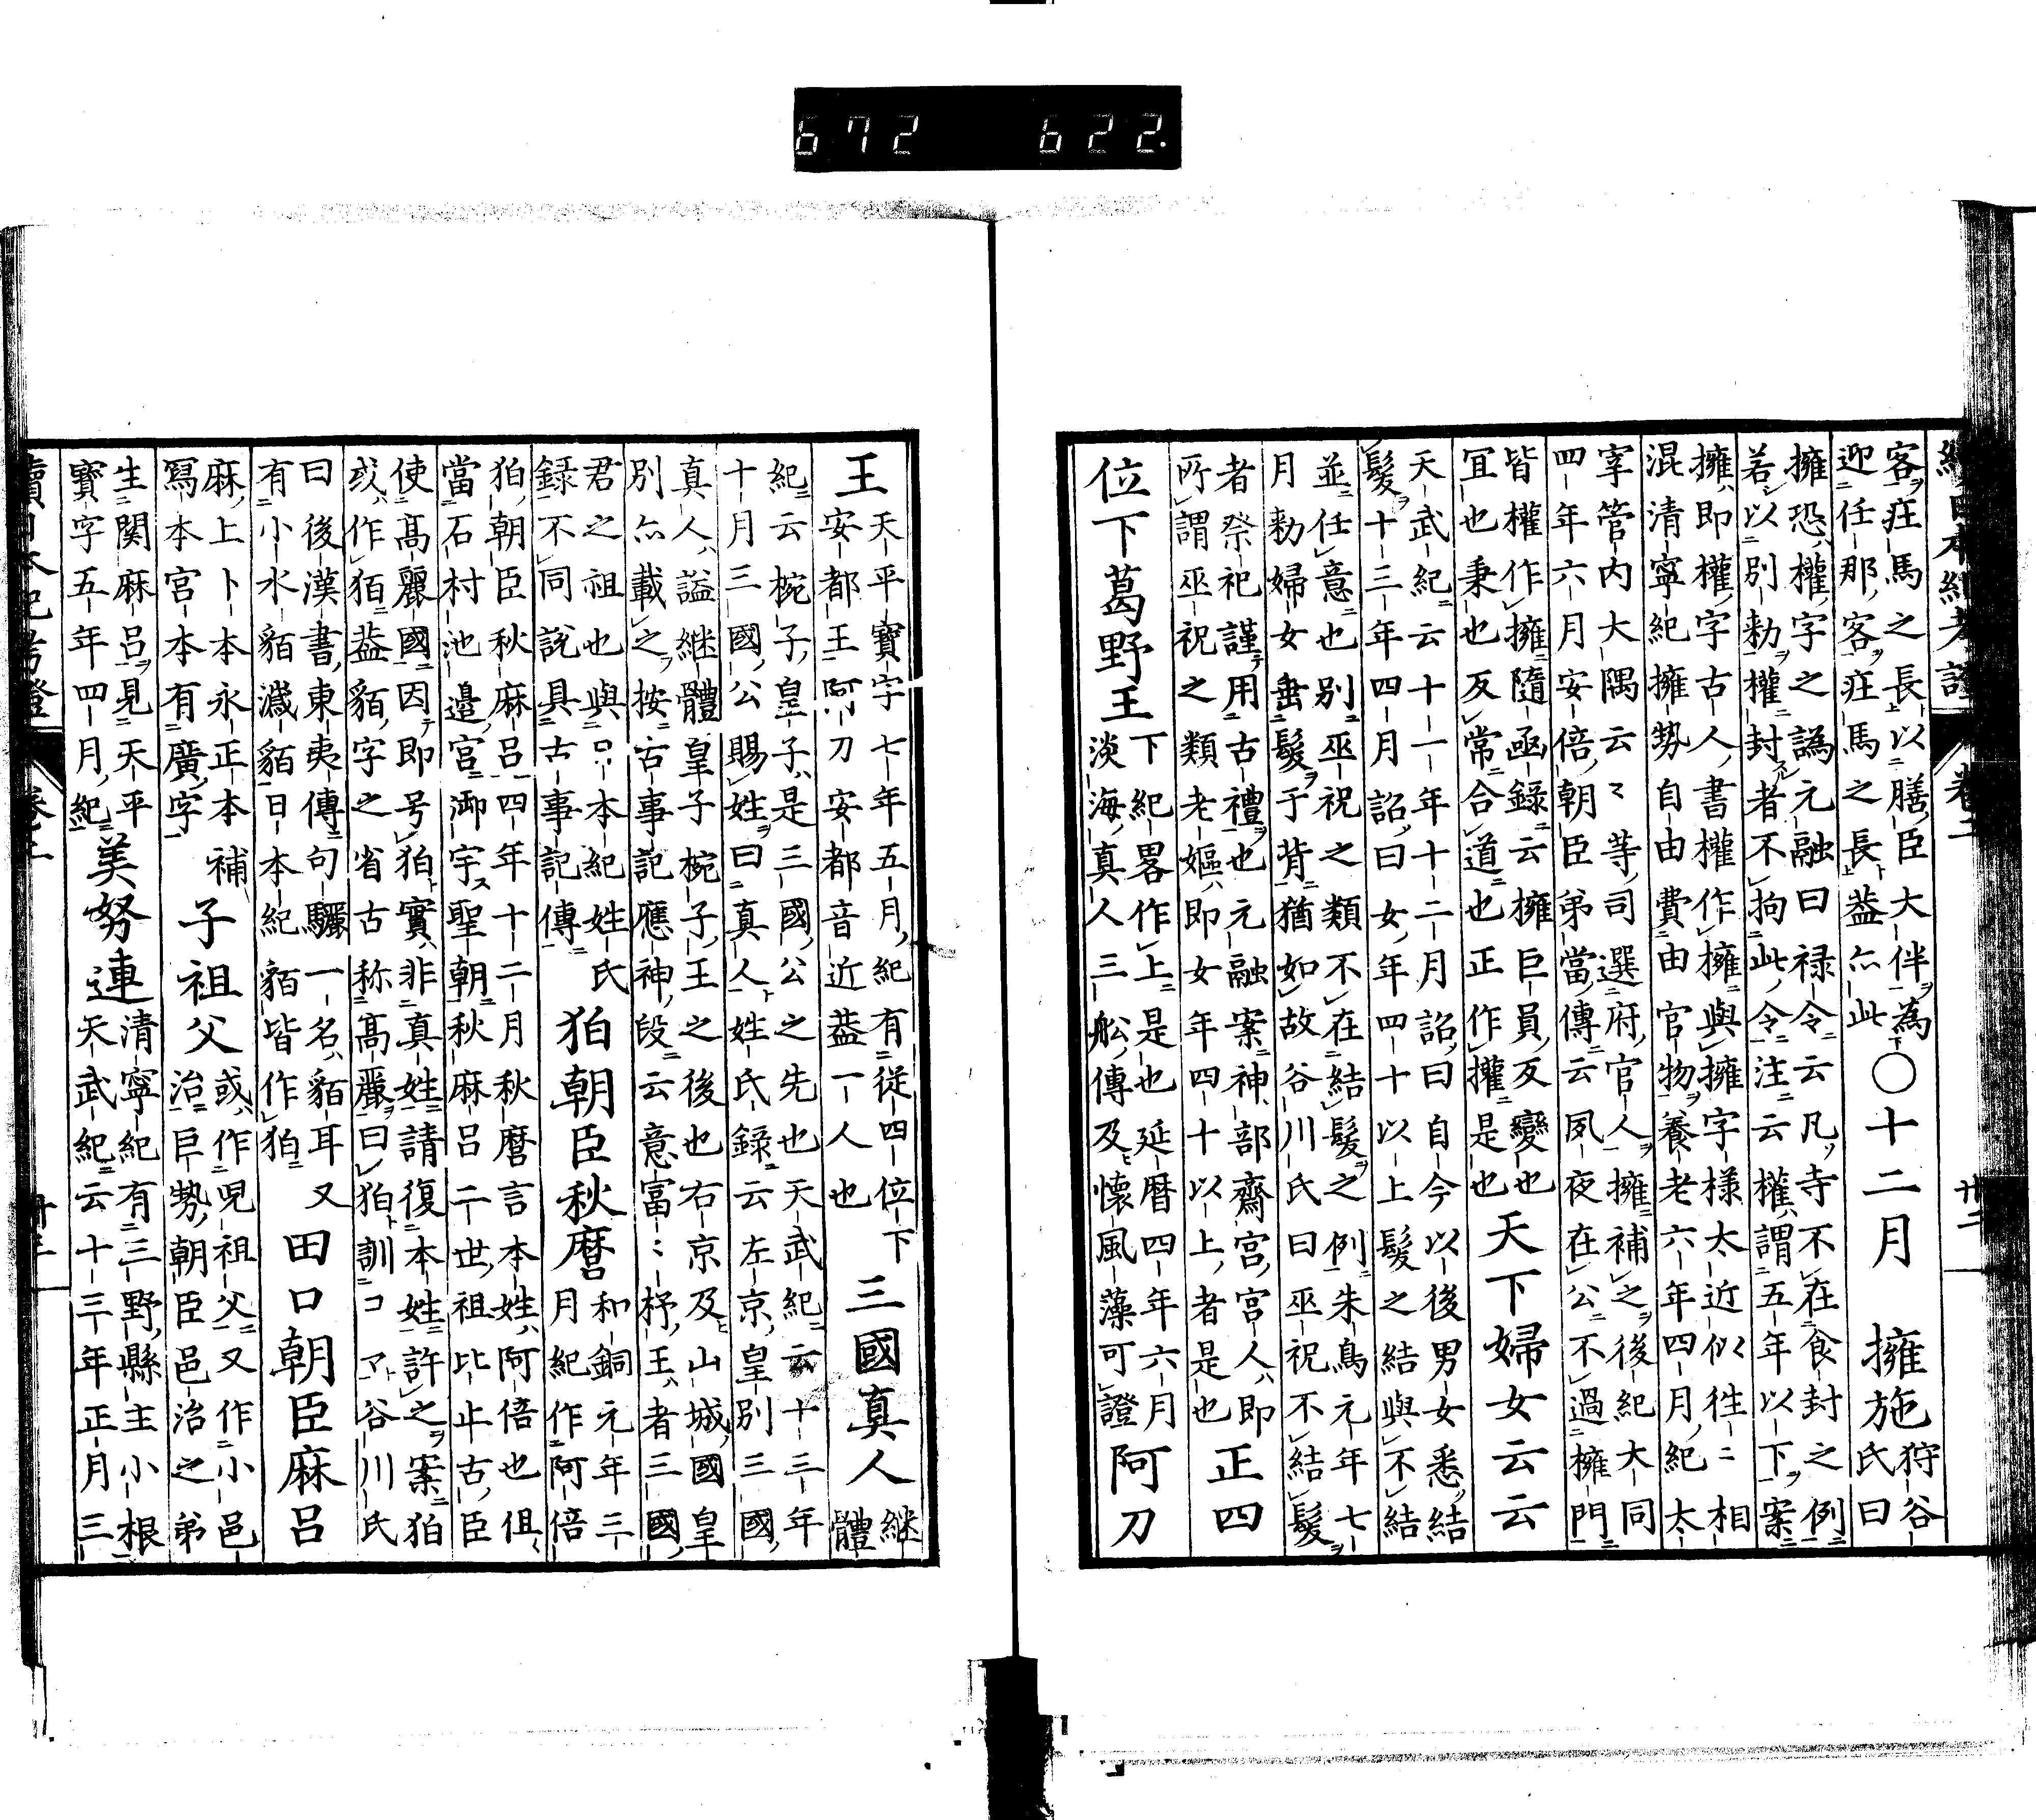 672 622.
續日本紀考證 卷二 廿二
客疰馬之長以膳臣大伴為
迎任那客疰馬之長葢亦此
〇十二月 擁施
狩谷氏曰
擁恐權字之譌元融曰禄令云凡寺不在食封之例
若以別勅權封者不拘此令注云權謂五年以下案
擁即權字古人書權作擁與擁字様太近似徃〻相
混清寧紀擁勢自由費由官物養老六年四月紀太
宰管内大隅云〻等司選府官人擁補之後紀大同
四年六月安倍朝臣弟當傳云夙夜在公不過擁門
皆權作擁隨函錄云擁巨員反變也
宜也秉也反常合道也正作權是也
天下婦女云云
天武紀云十一年十二月詔曰自今以後男女悉結
髮十三年四月詔曰女年四十以上髮之結與不結
並任意也別巫祝之類不在結髮之例朱鳥元年七
月勅婦女垂髮于背猶如故谷川氏曰巫祝不結髮
者祭祀謹用古禮也元融案神部齋宮宮人即
所謂巫祝之類老嫗即女年四十以上者是也
正四
位下葛野王
下紀畧作上是也延暦四年六月
淡海真人三舩傳及懷風藻可證
阿刀
王
天平寶字七年五月紀有從四位下
安都王阿刀安都音近葢一人也
三國真人
継體
紀云椀子皇子是三國公之先也天武紀云十三年
十月三國公賜姓曰真人姓氏録云左京皇別三國
真人謚継體皇子椀子王之後也右京及山城國皇
別亦載之按古事記應神段云意富〻杼王者三國
君之祖也與日本紀姓氏
録不同説具古事記傳
狛朝臣秋麿
和銅元年三
月紀作阿倍
狛朝臣秋麻呂四年十二月秋麿言本姓阿倍也但
當石村池邉宮御宇聖朝秋麻呂二世祖比止古臣
使髙麗國因即号狛實非真姓請復本姓許之案狛
或作狛葢貊字之省古称髙麗曰狛訓コマ谷川氏
曰後漢書東夷傳句驪一名貊耳又
有小水貊濊貊日本紀貊皆作狛
田口朝臣麻呂
麻上卜本永正本補
寫本宮本有廣字
子祖父
或作児祖父又作小邑
治巨勢朝臣邑治之弟
生関麻呂見天平
寶字五年四月紀
美努連
清寧紀有三野縣主小根
天武紀云十三年正月三
續日本紀考證 卷二 廿三